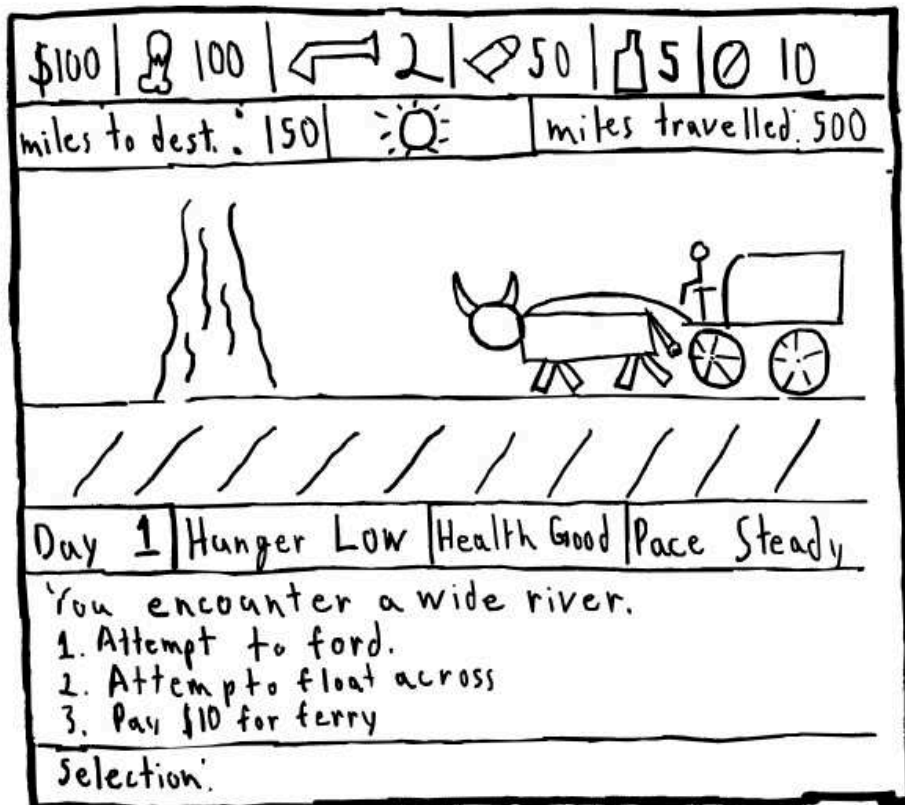 $100 100 2 50 5 10
miles to dest.: 150 miles travelled: 500
Day 1 Hunger Low Health Good Pace Steady
You encounter a wide river.
1. Attempt to ford.
2. Attemp to float across
3. Pay $10 for ferry
Selection: